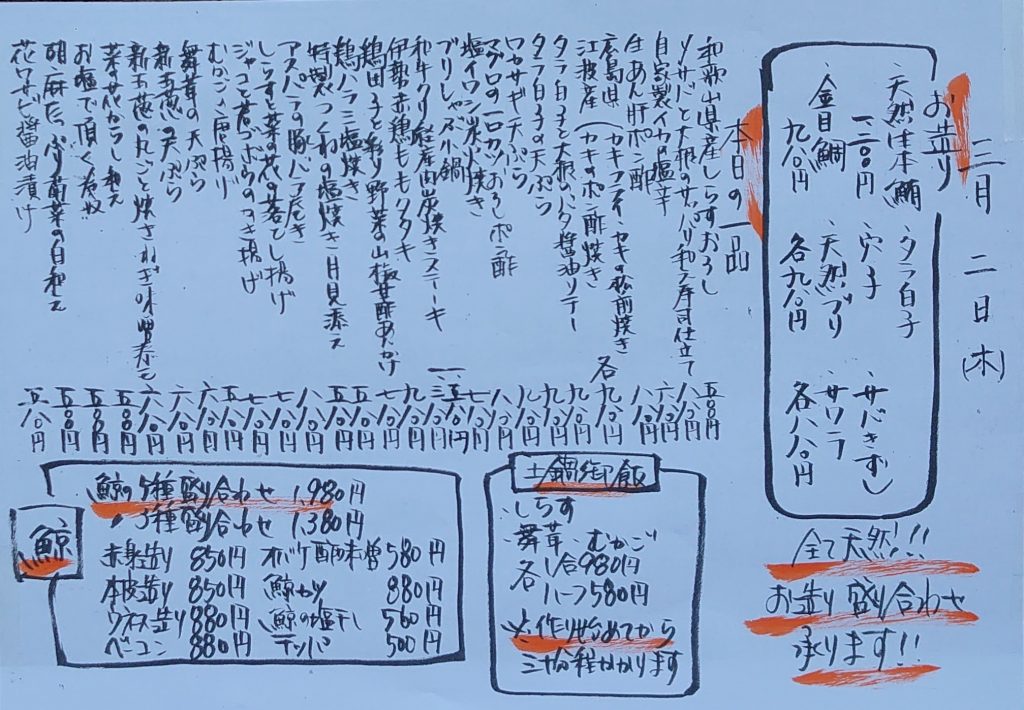 三月二日(木)
お造り
天然生本鮪
一二〇〇円
金目鯛
九八〇円
タラ白子
穴子
天然ブリ
各九八〇円
サバきずし
サワラ
各八八〇円
全て天然!!
お造り盛り合わせ
承ります!!
本日の一品
和歌山県産しらすおろし 五八〇円
〆サバと大根のサッパリ和え寿司仕立て 八八〇円
自家製イカ塩辛 六八〇円
生あん肝ポン酢 八八〇円
広島県 (カキフライ・カキの松前焼き
江波産 (カキのポン酢焼き 各九八〇円
タラ白子と大根のバタ醤油ソテー 九八〇円
タラ白子の天ぷら 九八〇円
ワカサギ天ぷら 八八〇円
マグロの一口カツおろしポン酢
塩イワシ炭火焼き
ブリしゃぶ小鍋
和牛クリ 経産肉炭焼きステーキ
伊勢赤鶏ももタタキ
鶏団子と彩り野菜の山椒甘酢あんかけ
鶏ハラミ塩焼き
特製つくねの塩焼き月見添え
アスパラの豚バラ巻き
しらすと菜の花の落とし揚げ
ジャコと葉ゴボウのかき揚げ
むかごの唐揚げ
舞茸の天ぷら
新玉葱の天ぷら
新玉葱の丸ごと焼き ねぎ味噌添え
菜の花からし和え
お塩で頂く冷奴
胡麻たっぷり菊菜の白和え
花ワサビ醤油漬け
土鍋御飯
・しらす
・舞茸・むかご
各 1合980円
ハーフ580円
※作り始めてから
三十分程かかります
鯨
鯨の5種盛り合わせ 1,980円
〃3種盛り合わせ 1,380円
赤身造り 850円
本皮造り 850円
ウネス造り 880円
ベーコン 880円
オバケ酢味噌 580円
鯨カツ 880円
鯨の塩干し 560円
テッパ 500円